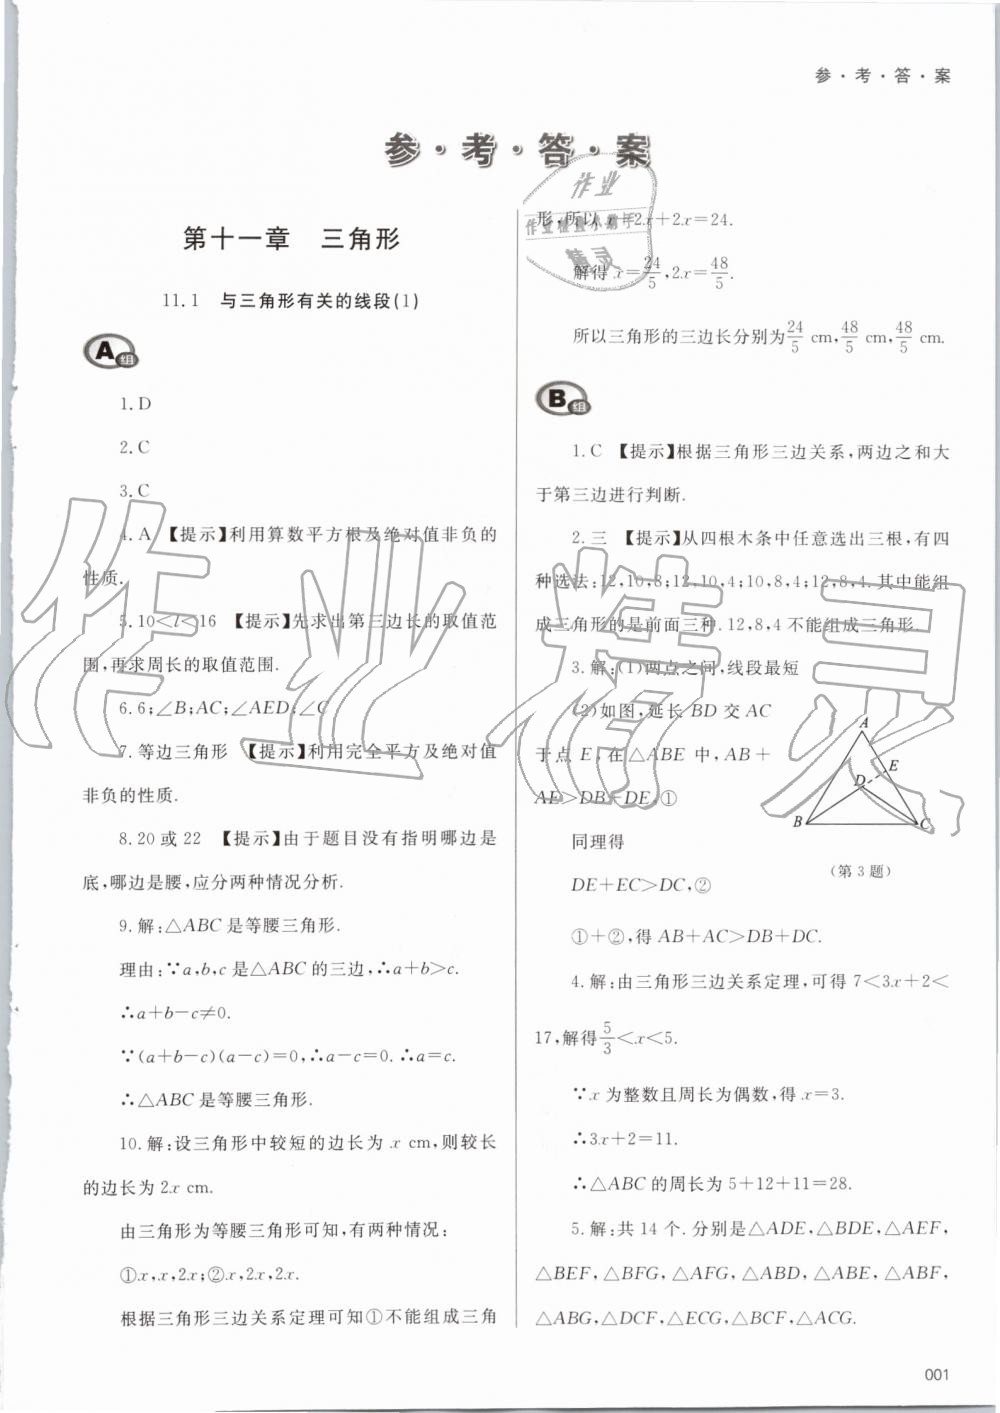 参·考·答·案
参·考·答·案
第十一章 三角形
11.1 与三角形有关的线段(1)
A组
1.D
2.C
3.C
4.A 【提示】利用算数平方根及绝对值非负的
性质.
5.10<l<16 【提示】先求出第三边长的取值范
围,再求周长的取值范围.
6.6;∠B;AC;∠AED;∠C
7.等边三角形 【提示】利用完全平方及绝对值
非负的性质.
8.20或22 【提示】由于题目没有指明哪边是
底,哪边是腰,应分两种情况分析.
9.解:△ABC是等腰三角形.
理由:∵a,b,c是△ABC的三边,∴a+b>c.
∴a+b-c≠0.
∵(a+b-c)(a-c)=0,∴a-c=0.∴a=c.
∴△ABC是等腰三角形.
10.解:设三角形中较短的边长为x cm,则较长
的边长为2x cm.
由三角形为等腰三角形可知,有两种情况:
①x,x,2x;②x,2x,2x.
根据三角形三边关系定理可知①不能组成三角
形,所以x+2x+2x=24.
解得x=24/5,2x=48/5.
所以三角形的三边长分别为24/5 cm,48/5 cm,48/5 cm.
B组
1.C 【提示】根据三角形三边关系,两边之和大
于第三边进行判断.
2.三 【提示】从四根木条中任意选出三根,有四
种选法:12,10,8;12,10,4;10,8,4;12,8,4.其中能组
成三角形的是前面三种.12,8,4不能组成三角形.
3.解:(1)两点之间,线段最短
(2)如图,延长BD交AC
于点E,在△ABE中,AB+
AE>DB+DE,①
同理得
DE+EC>DC,②
A
E
D
B
C
(第3题)
①+②,得AB+AC>DB+DC.
4.解:由三角形三边关系定理,可得7<3x+2<
17,解得5/3<x<5.
∵x为整数且周长为偶数,得x=3.
∴3x+2=11.
∴△ABC的周长为5+12+11=28.
5.解:共14个.分别是△ADE,△BDE,△AEF,
△BEF,△BFG,△AFG,△ABD,△ABE,△ABF,
△ABG,△DCF,△ECG,△BCF,△ACG.
001
作业精灵
作业
作业检查小助手
精灵